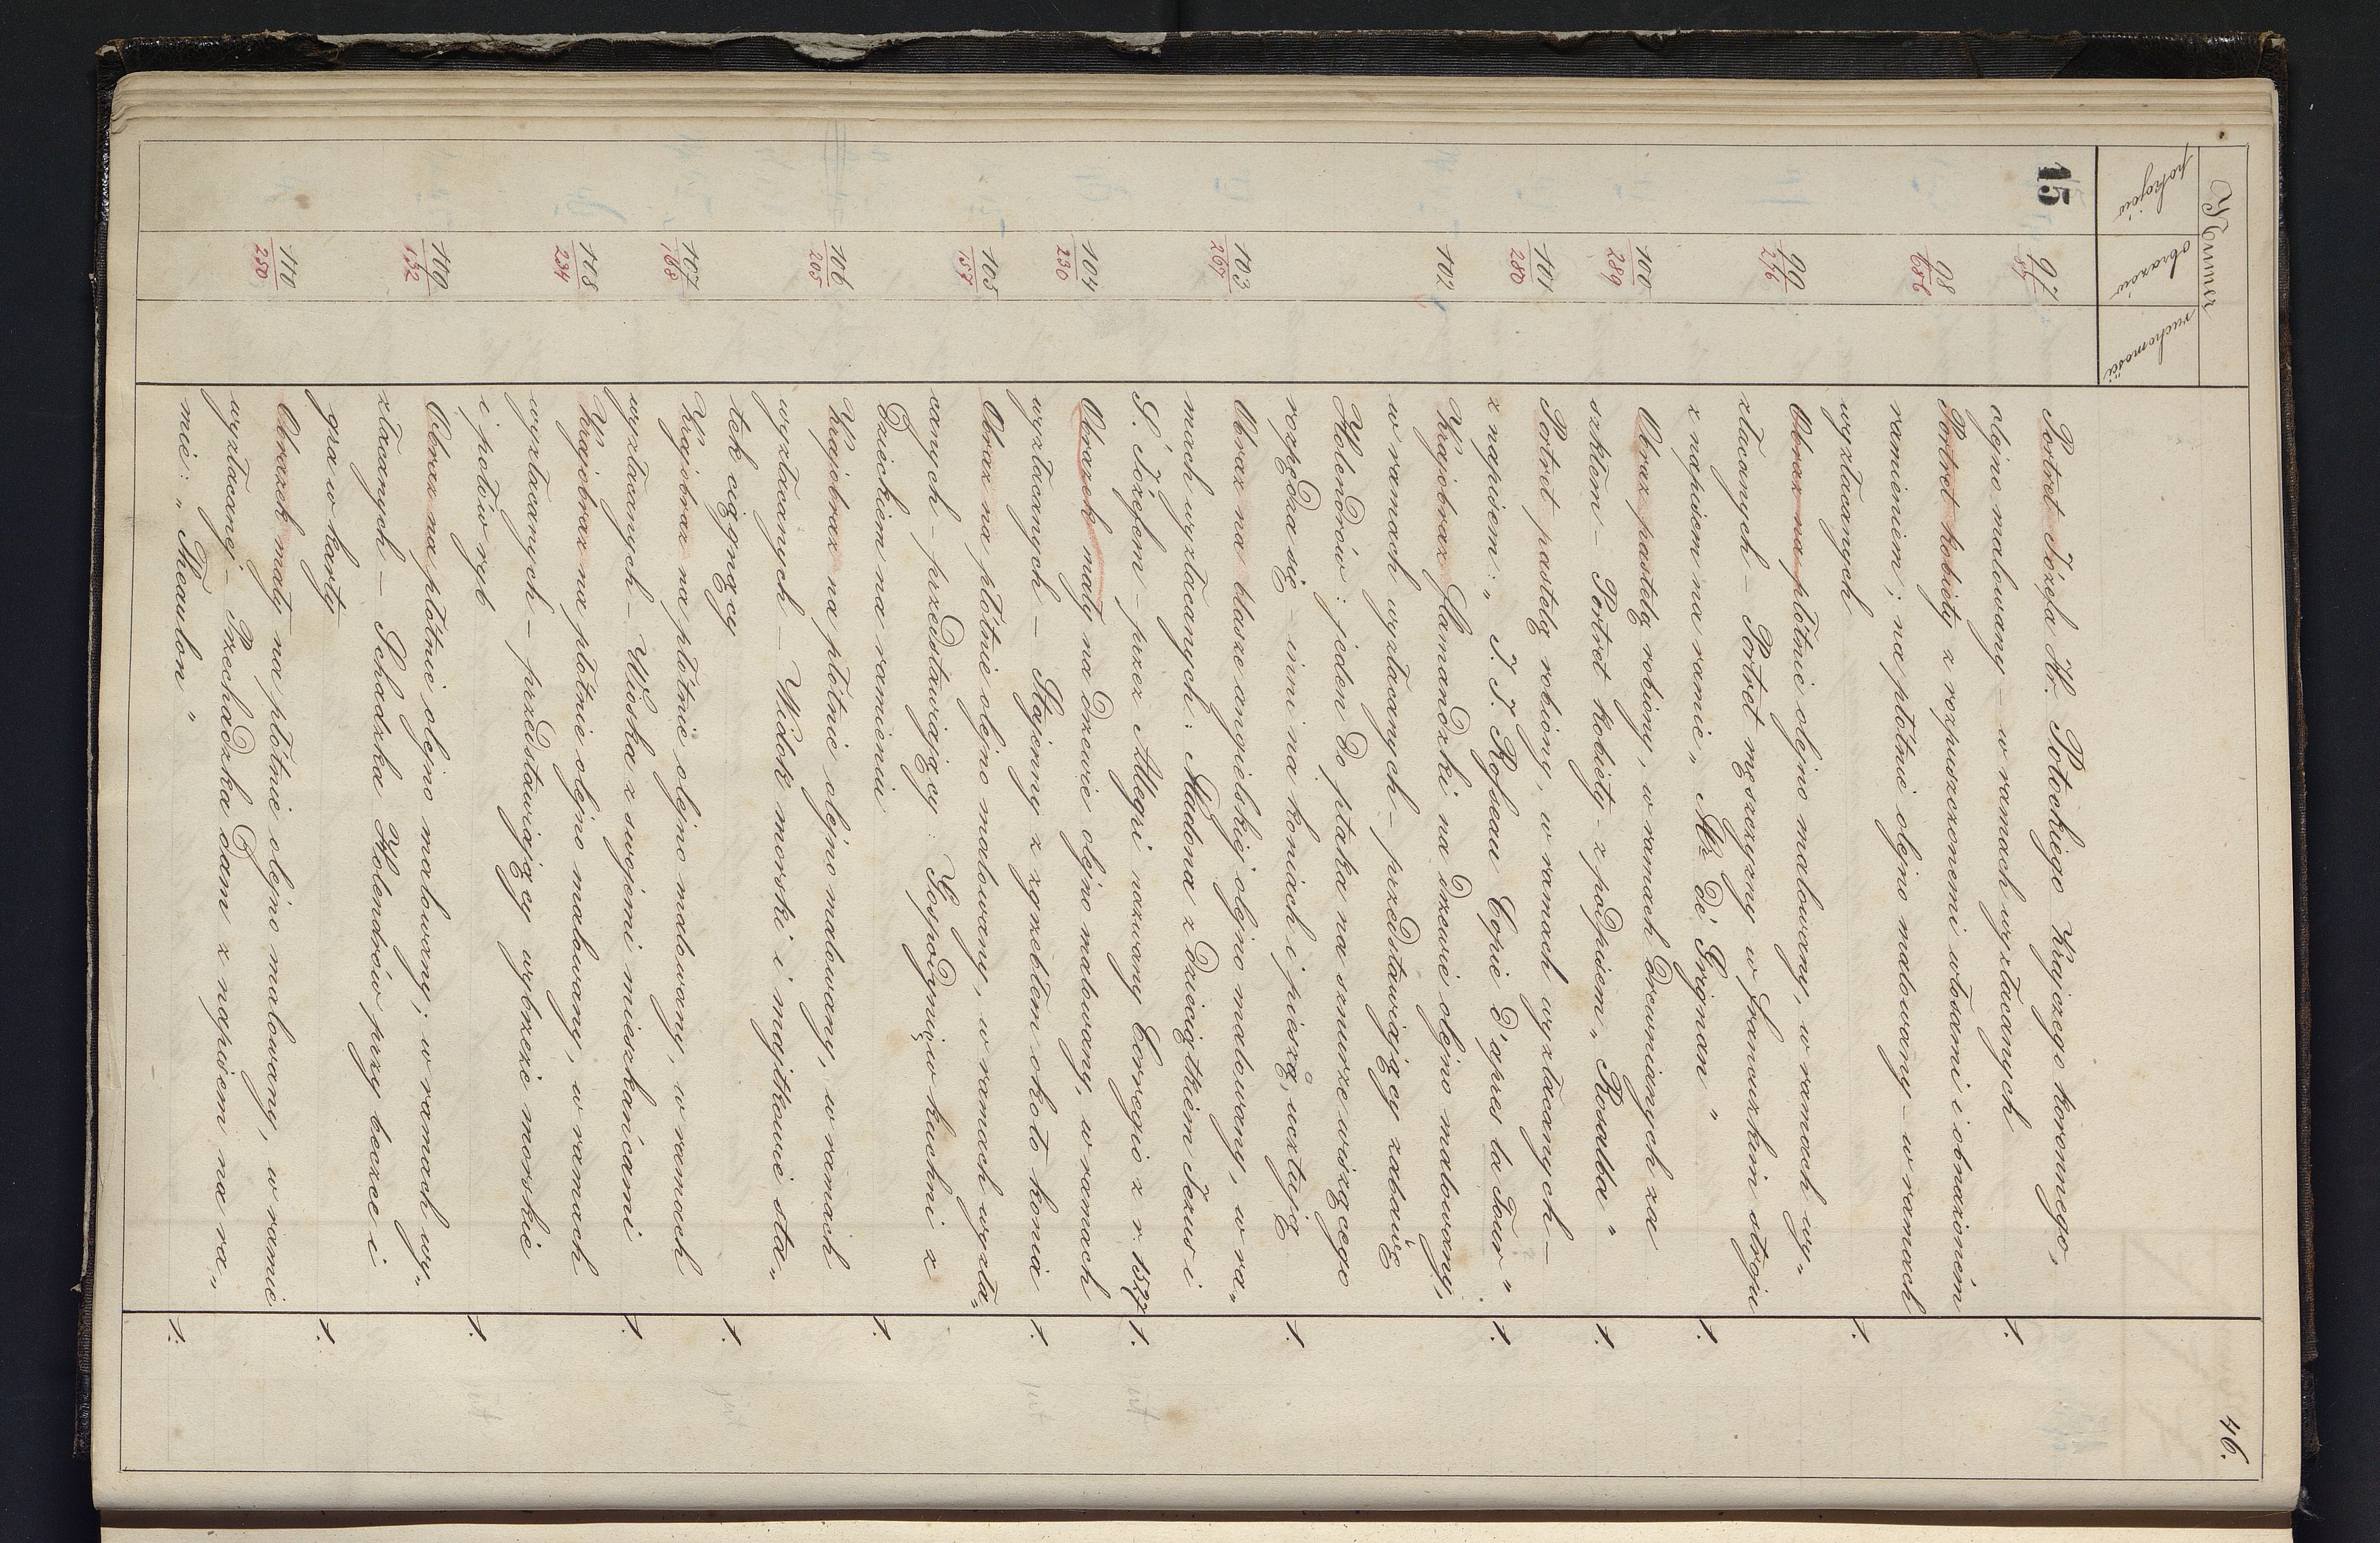 46.
Numer
pokojów obrazów ruchomości
15 97 Portret Józefa Hr. Potockiego Krajczego koronnego,
olejno malowany – w ramach wyzłacanych 1.
98 Portret kobiéty z rozpuszczonemi włosami i obnażoném
686 ramieniem; na płótnie olejno malowany – w ramach
wyzłacanych 1.
99 Obraz na płótnie olejno malowany, w ramach wy„
276 złacanych – Portret męszczyzny w francuzkim stroju
z napisem na ramie „ Mr de Grignan " 1.
100 Obraz pastelą robiony, w ramach drewnianych za
289 szkłem – Portret kobiéty – z podpisem „ Rosalba " 1.
101 Portret pastelą robiony, w ramach wyzłacanych –
280 z napisem: „ J. J. Rosseau Copie d'apres la Tour " 1.
102 Krajobraz flamandzki na drzewie olejno malowany,
w ramach wyzłacanych – przedstawiający zabawę
Holendrów: jeden do ptaka na sznurze wiszącego
rozpędza się – inni na koniach i pieszo, ucztują 1.
103 Obraz na blasze angielskiej olejno malowany, w ra„
267 mach wyzłacanych: Madona z Dzieciątkiem Jezus i
Ś. Józefem – przez Allegri nazwany Corregio z r. 1527 1.
104 Obrazek mały na drzewie olejno malowany, w ramach
230 wyzłacanych – Stajenny z zgrzebłem około konia 1.
105 Obraz na płótnie olejno malowany, w ramach wyzła„
157 canych – przedstawiający: Gospodynię w kuchni z
Dzieckiem na ramieniu 1.
106 Krajobraz na płótnie olejno malowany, w ramach
205 wyzłacanych – Widok morski i majtkowie sta„
tek ciągnący 1.
107 Krajobraz na płótnie olejno malowany, w ramach
168 wyzłacanych – Wioska z swojemi mieszkańcami 1.
108 Krajobraz na płótnie olejno malowany, w ramach
234 wyzłacanych – przedstawiający wybrzeże morskie
i połów ryb 1.
109 Obraz na płótnie olejno malowany; w ramach wy„
132 złacanych – Schadzka Holendrów przy beczce i
gra w karty 1.
110 Obrazek mały na płótnie olejno malowany, w ramie
250 wyzłacanéj – Przechadzka dam z napisem na ra„
mie: „ Theaulon " 1.